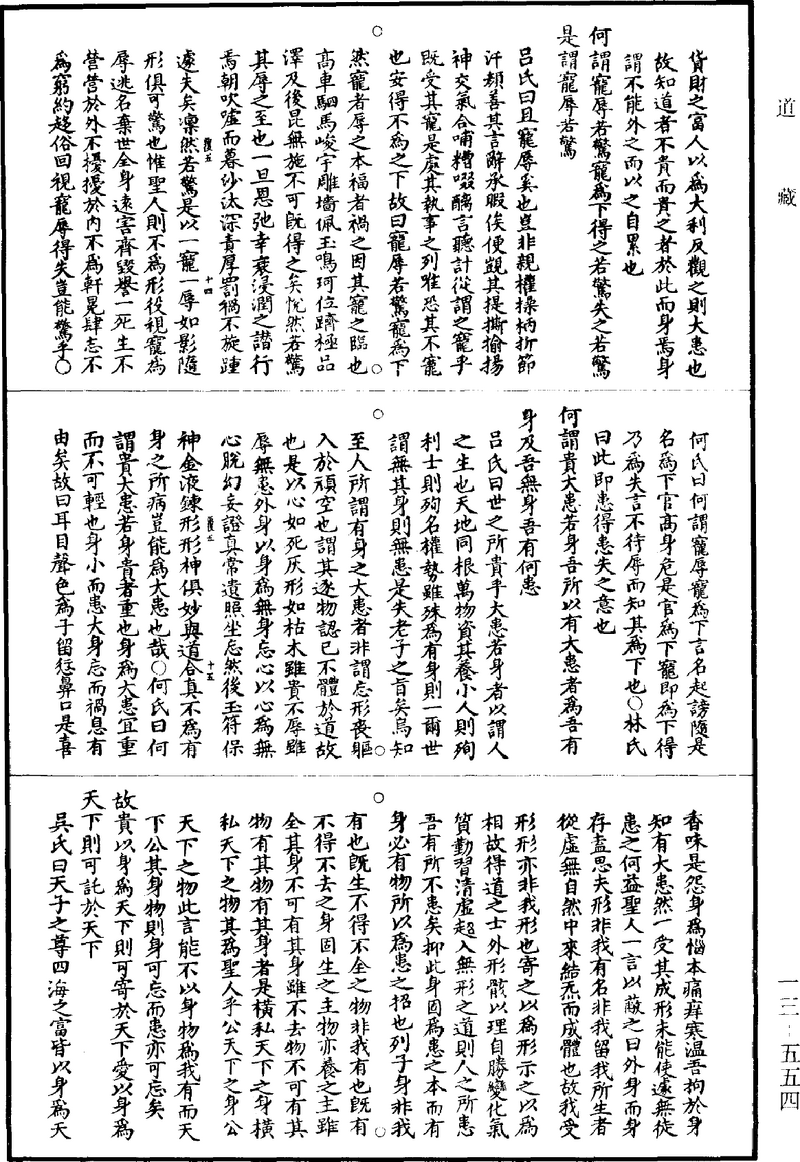 道藏
一三-五五四
貨財之富人以為大利反觀之則大患也
故知道者不貴而貴之者於此而身焉身
謂不能外之而以之自累也
何謂寵辱若驚寵為下得之若驚失之若驚
是謂寵辱若驚
呂氏曰且寵辱奚也豈非親權操柄折節
汗顏善其言辭承暇俟便觀其提撕揄揚
神交氣合哺糟啜醨言聽計從謂之寵乎
既受其寵是處其執事之列唯恐其不寵
也安得不為之下故曰寵辱若驚寵為下
然寵者辱之本福者禍之因其寵之臨也
高車駟馬峻宇雕墻佩玉鳴珂位躋極品
澤及後昆無施不可既得之矣恍然若驚
其辱之至也一旦恩弛幸衰浸潤之譖行
焉朝吹噓而暮沙汰深責厚罰禍不旋踵
遽夫矣凜然若驚是以一寵一辱如影隨
形俱可驚也惟聖人則不為形役視寵為
辱逃名棄世全身遠害齊毀譽一死生不
營營於外不擾擾於內不為軒冕肆志不
為窮約趍俗回視寵辱得失豈能驚乎○
何氏曰何謂寵辱寵為下言名起謗隨是
名為下官高身危是官為下寵即為下得
乃為失言不待辱而知其為下也○林氏
曰此即患得患失之意也
何謂貴大患若身吾所以有大患者為吾有
身及吾無身吾有何患
呂氏曰世之所貴乎大患若身者以謂人
之生也天地同根萬物資其養小人則殉
利士則殉名權勢雖殊為有身則一爾世
謂無其身則無患是失老子之旨矣烏知
至人所謂有身之大患者非謂忘形喪軀
入於頑空也謂其逐物認已不體於道故
也是以心如死灰形如枯木雖貴不辱雖
辱無患外身以身為無身忘心以心為無
心脫幻妄證真常遺照坐忘然後玉符保
神金液鍊形形神俱妙與道合真不為有
身之所病豈能為大患也哉○何氏曰何
謂貴大患若身貴者重也身為大患宜重
而不可輕也身小而患大身忘而禍息有
由矣故曰耳目聲色為子留愆鼻口是喜
香味是怨身為惱本痛痒寒溫吾拘於身
知有大患然一受其成形未能使遽無徒
患之何益聖人一言以蔽之曰外身而身
存盍思夫形非我有名非我留我所生者
從虛無自然中來結炁而成體也故我受
形形亦非我形也寄之以為形示之以為
相故得道之士外形骸以理自勝變化氣
質勤習清虛超入無形之道則人之所患
吾有所不患矣抑此身固為患之本而有
身必有物所以為患之招也列子身非我
有也既生不得不全之物非我有也既有
不得不去之身固生之主物亦養之主雖
全其身不可有其身雖不去物不可有其
物有其物有其身者是橫私天下之身橫
私天下之物其為聖人乎公天下之身公
天下之物此言能不以身物為我有而天
下公其身物則身可忘而患亦可忘矣
故貴以身為天下則可寄於天下愛以身為
天下則可託於天下
吳氏曰天子之尊四海之富皆以身為天